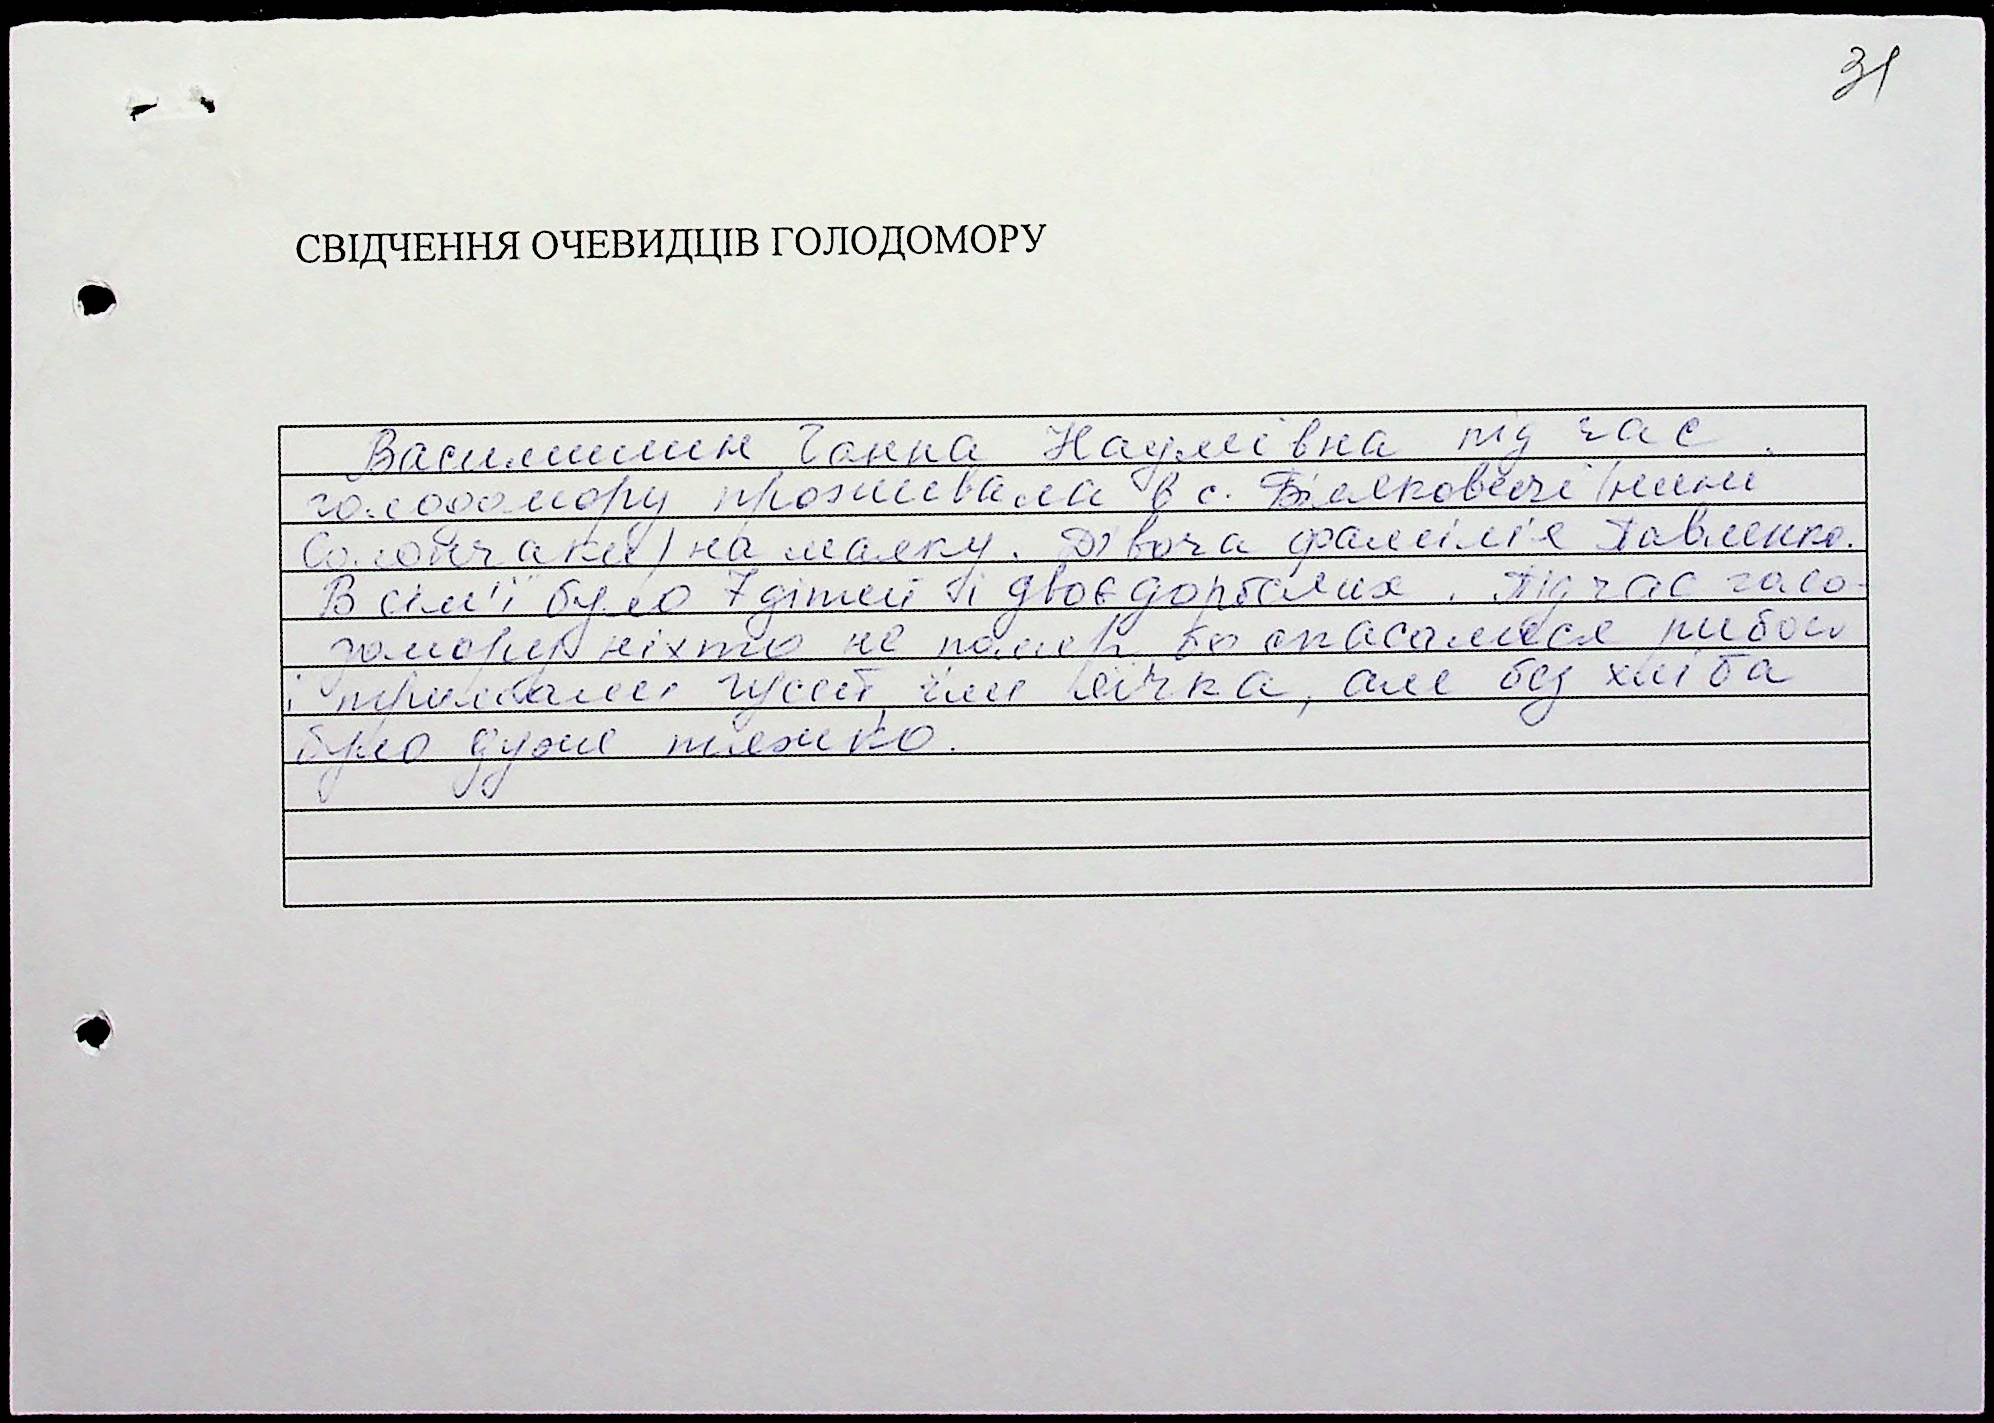 31
СВІДЧЕННЯ ОЧЕВИДЦІВ ГОЛОДОМОРУ
Василишин Ганна Наумівна під час
голодомору проживала в с. (нині
Солончаки) на маяку. Дівоча фамілія Павленко.
В сім'ї було 7 дітей і двоє дорослих. Під час голо-
домору ніхто не помер бо спасалися рибою
і тримали гусей, їли яїчка, але без хліба
було дуже тяжко.